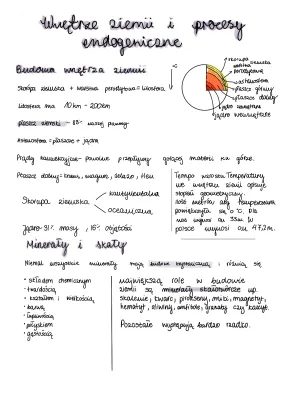 Wnętrze ziemii i procesy
endogeniczne
Budowa wnętrza ziemii
skorupa ziemska
warstwa
perydotytowa
astenosfera
płaszcz górny
płaszcz dolny
jądro zewnętrzne
jądro wewnętrzne
Skorupa ziemska + warstwa perydotytowa = litosfera
Litosfera ma 10km - 200km
płaszcz ziemski - 83% naszej planety
Astenosfera = płaszcz + jądro
Prądy konwekcyjne - powolne przepływy gorącej materii ku górze.
Płaszcz dolny = krzem, magnez, żelazo, tlen
Skorupa ziemska
kontynentalna
oceaniczna
Jądro - 31% masy, 16% objętości
Tempo wzrostu Temperatury
we wnętrzu ziemi opisuje
stopień geotermiczny.
Ilość metrów aby temperatura
powiększyła się o °C. Dla
nas wynosi on 33m. W
polsce wynosi on 47,2m.
Minerały i skały
Niemal wszystkie minerały mają budowę krystaliczną i różnią się
· składem chemicznym
· twardością
· kształtem i wielkością
· barwą
· łupliwością
· połyskiem
· gęstością
największą rolę w budowie
ziemi są minerały skałotwórcze np.
skalenie, kwarc, pirokseny, miki, magnetyt,
hematyt, oliwiny, amfibole, granaty czy kalcyt.
Pozostałe występują bardzo rzadko.